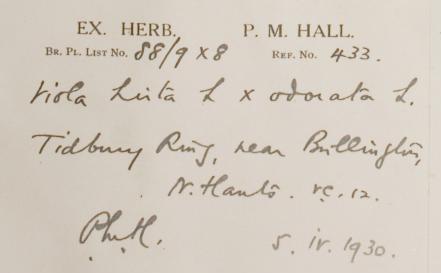 EX. HERB. P. M. HALL.
BR. PL. LIST NO. 88/9 x 8 REF. NO. 433.
Viola hirta L x odorata L.
Tidbury Ring, near Bullington,
N. Hants. vc. 12.
P.M.H.
5. iv. 1930.